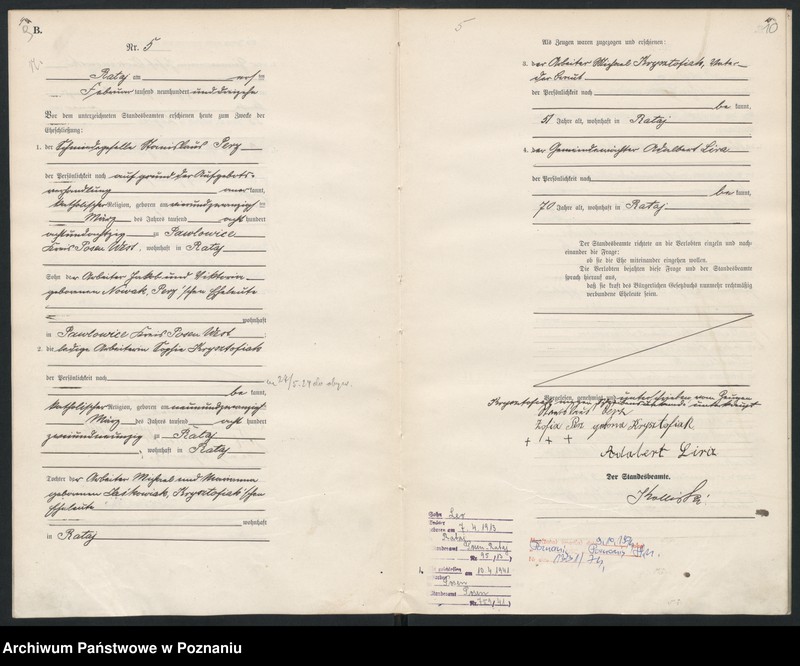 B.
Nr. 5
Rataj am
Februar tausend neunhundert und dreizehn
Vor dem unterzeichneten Standesbeamten erschienen heute zum Zwecke der
Eheschließung:
1. der Schmiedegeselle Stanislaus Perz
der Persönlichkeit nach auf grund der Aufgebots-
verhandlung kannt,
katholischer Religion, geboren am neunundzwanzigsten
März des Jahres tausend acht hundert
achtundachtzig zu Pawlowice
Kreis Posen West, wohnhaft in Rataj
Sohn der Arbeiter Jakob und Viktoria
geborenen Nowak, Perz'schen Eheleute
wohnhaft
in Pawlowice Kreis Posen West
2. die ledige Arbeiterin Sophie Krysztofiak
der Persönlichkeit nach
be kannt,
katholischer Religion, geboren am neunundzwanzigsten
März des Jahres tausend acht hundert
zweiundneunzig zu Rataj
, wohnhaft in Rataj
Tochter der Arbeiter Michael und Marianna
geborenen Krysztofiak'schen
Eheleute
wohnhaft
in Rataj
5
10
Als Zeugen waren zugezogen und erschienen:
3. der Arbeiter Michael Krysztofiak,
der Persönlichkeit nach
be kannt,
51 Jahre alt, wohnhaft in Rataj
4. der Adalbert Lira
der Persönlichkeit nach
be kannt,
70 Jahre alt, wohnhaft in Rataj
Der Standesbeamte richtete an die Verlobten einzeln und nach-
einander die Frage:
ob sie die Ehe miteinander eingehen wollen.
Die Verlobten bejahten diese Frage und der Standesbeamte
sprach hierauf aus,
daß sie kraft des Bürgerlichen Gesetzbuchs nunmehr rechtmäßig
verbundene Eheleute seien.
Vorgelesen, genehmigt und unterschrieben vom Zeugen
Krysztofiak wegen
Stanislaus Perz
Zofia Perz geborna Krysztofiak
+ + +
Adalbert Lira
Der Standesbeamte.
Sohn Leo
geboren am 7. 4. 1913
Rataj
Standesamt Posen-Rataj
Nr. 95/13
1.
am 10.4.1941
Posen
Standesamt Posen
Nr. 353/41
Archiwum Państwowe w Poznaniu